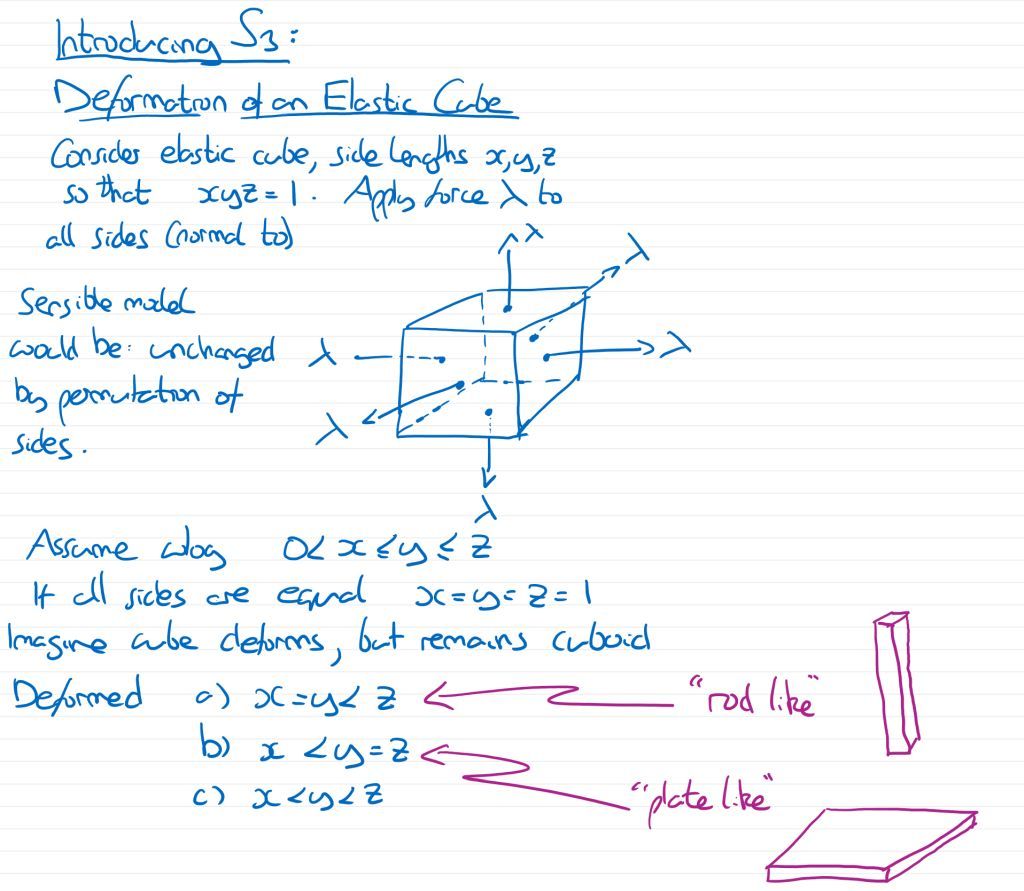 Introducing S3:
Deformation of an Elastic Cube
Consider elastic cube, side lengths x,y,z
so that xyz = 1. Apply force λ to
all sides (normal to)
λ
λ
Sensible model
would be: unchanged
λ
λ
by permutation of
λ
sides.
λ
Assume wlog 0< x ≤ y ≤ z
If all sides are equal x=y=z=1
Imagine cube deforms, but remains cuboid
Deformed a) x=y< z "rod like"
b) x <y=z
c) x<y<z "plate like"